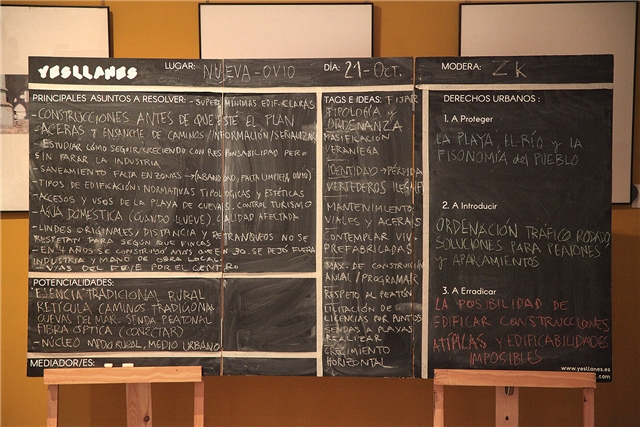 YESLLANES
LUGAR: NUEVA-OVIO
DÍA: 21-Oct.
MODERA: ZK
PRINCIPALES ASUNTOS A RESOLVER: - SUPERF. MÍNIMAS EDIFICLARAS
- CONSTRUCCIONES ANTES DE QUE ESTÉ EL PLAN
- ACERAS y ENSANCHE DE CAMINOS/INFORMACIÓN/SEÑALIZAR
ESTUDIAR CÓMO SEGUIR CRECIENDO CON RESPONSABILIDAD PERO
SIN PARAR LA INDUSTRIA
- SANEAMIENTO FALTA EN ZONAS → (ABANDONO, FALTA LIMPIEZA OVIO)
- TIPOS DE EDIFICACIÓN: NORMATIVAS TIPOLÓGICAS y ESTÉTICAS
- ACCESOS y USOS DE LA PLAYA DE CUEVAS. CONTROL TURISMO
- AGUA DOMÉSTICA (CUANDO LLUEVE) CALIDAD AFECTADA
- LINDES ORIGINALES, DISTANCIA y RETRANQUEOS NO SE
RESPETAN PARA SEGÚN QUE FINCAS
- EN 4 AÑOS SE CONSTRUYÓ MÁS QUE EN 30. SE DEJÓ FUERA
INDUSTRIA y MANO DE OBRA LOCAL.
- VÍAS DEL FEVE POR EL CENTRO
POTENCIALIDADES:
ESENCIA TRADICIONAL RURAL
RETÍCULA CAMINOS TRADICIONAL
CUEVA DEL MAR. SENDA PEATONAL
FIBRA ÓPTICA (CONECTAR)
- NÚCLEO MEDIO RURAL, MEDIO URBANO
MEDIADOR/ES:
TAGS E IDEAS: FIJAR
TIPOLOGÍA y
ORDENANZA
MASIFICACIÓN
VERANIEGA
IDENTIDAD → PÉRDIDA
VERTEDEROS ILEGALES
MANTENIMIENTO
VIALES y ACERAS
CONTEMPLAR VIV.
PREFABRICADAS
MAX. DE CONSTRUCCIÓN
ANUAL / PROGRAMAR
RESPETO AL PEATÓN
LICITACIÓN DE
LICENCIAS POR PUNTOS
SENDAS A PLAYAS
REALIZAR
CRECIMIENTO
HORIZONTAL
DERECHOS URBANOS :
1. A Proteger
LA PLAYA, EL RÍO y LA
FISONOMÍA del PUEBLO
2. A Introducir
ORDENACIÓN TRÁFICO RODADO,
SOLUCIONES PARA PEATONES
y APARCAMIENTOS
3. A Erradicar
LA POSIBILIDAD DE
EDIFICAR CONSTRUCCIONES
ATÍPILAS y EDIFICABILIDADES
IMPOSIBLES
www.yesllanes.es
.com